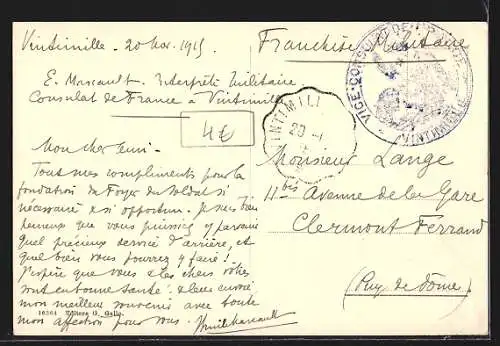 Vintimille - 20 Nov. 1915
Franchise Militaire
E. Marcault. Interprète Militaire
Consulat de France à Vintimille
4€
VICE-CONSULAT DE FRANCE
VINTIMILLE
VINTIMILI
20
Mon cher ami -
Tous mes compliments pour la
fondation du Foyer du Soldat si
nécessaire & si opportun. Je suis bien
heureux que vous puissiez y
quel précieux service d'arrière, et
quel bien vous pourrez y faire!
J'espère que vous & les chers vôtres
sont en bonne santé. & leur envoie
mon meilleur souvenir avec toute
mon affection pour vous.
Monsieur Lange
11 bis Avenue de la Gare
Clermont Ferrand
(Puy de Dôme)